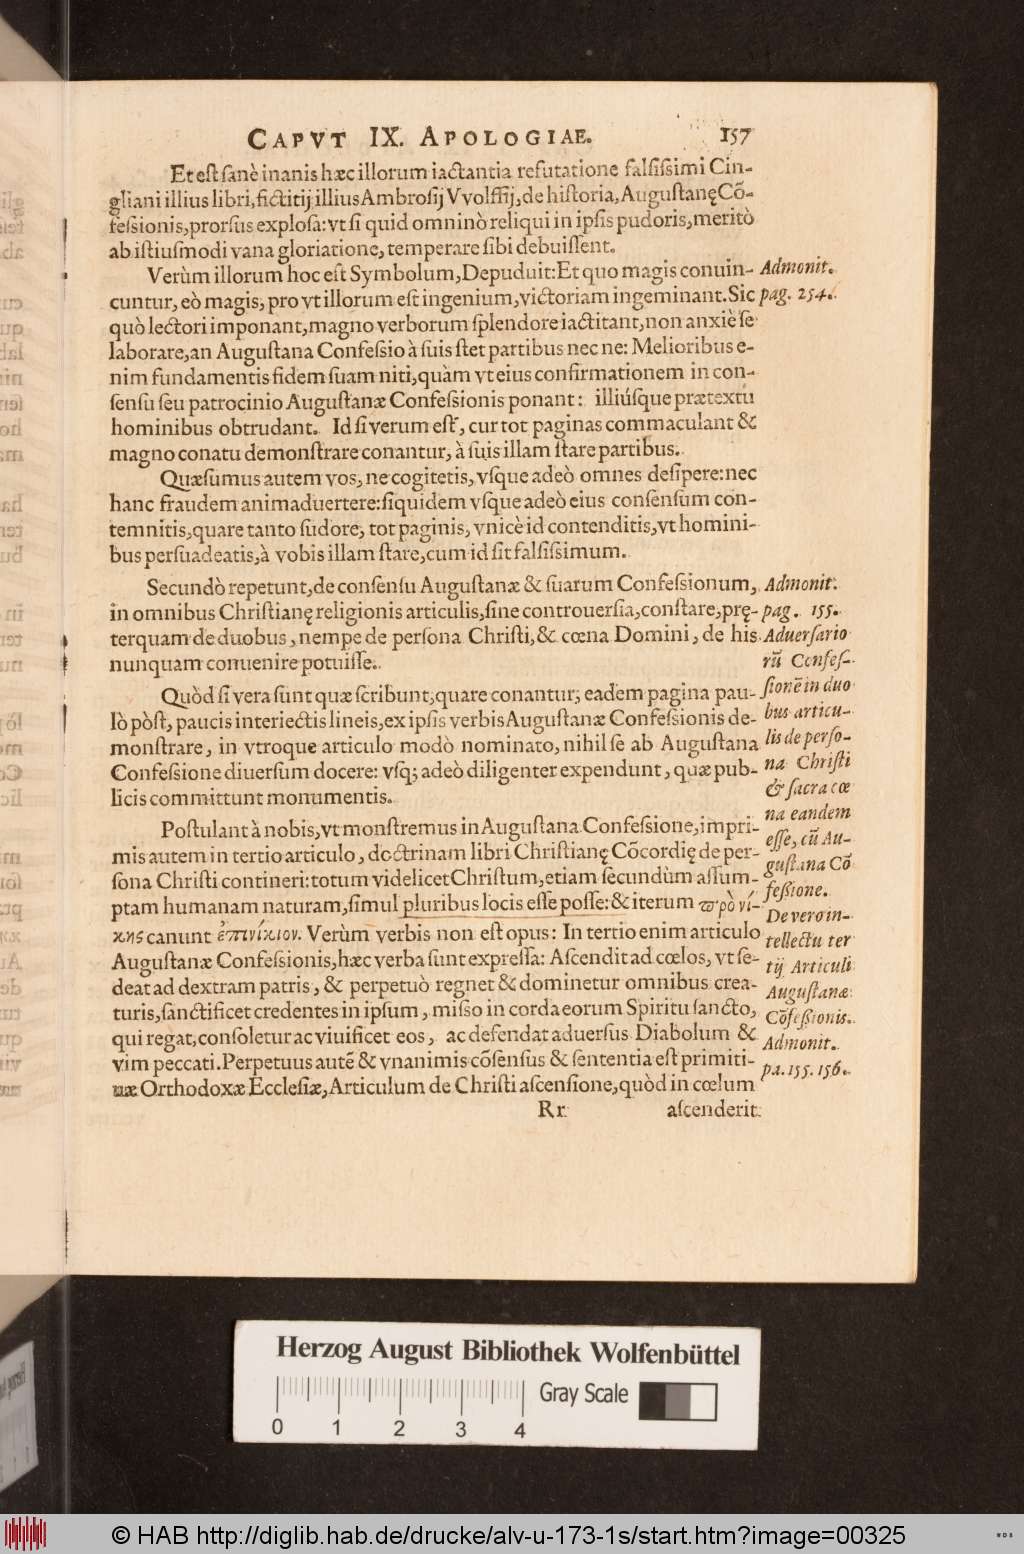 CAPVT IX. APOLOGIAE. 157
Et eſt ſanè inanis hæc illorum iactantia refutatione falſiſsimi Cin-
gliani illius libri, fictitij illius Ambroſij Vvolffij, de hiſtoria, Auguſtanę Cō-
feſsionis, prorſus exploſa: vt ſi quid omninò reliqui in ipſis pudoris, meritò
ab iſtiuſmodi vana gloriatione, temperare ſibi debuiſſent.
Verùm illorum hoc eſt Symbolum, Depuduit: Et quo magis conuin-
cuntur, eò magis, pro vt illorum eſt ingenium, victoriam ingeminant. Sic
quò lectori imponant, magno verborum ſplendore iactitant, non anxiè ſe
laborare, an Auguſtana Confeſsio à ſuis ſtet partibus nec ne: Melioribus e-
nim fundamentis fidem ſuam niti, quàm vt eius confirmationem in con-
ſenſu ſeu patrocinio Auguſtanæ Confeſsionis ponant: illiúſque prætextu
hominibus obtrudant. Id ſi verum eſt, cur tot paginas commaculant &
magno conatu demonſtrare conantur, à ſuis illam ſtare partibus.
Quæſumus autem vos, ne cogitetis, vſque adeò omnes deſipere: nec
hanc fraudem animaduertere: ſiquidem vſque adeò eius conſenſum con-
temnitis, quare tanto ſudore, tot paginis, vnicè id contenditis, vt homini-
bus perſuadeatis, à vobis illam ſtare, cum id ſit falſiſsimum.
Secundò repetunt, de conſenſu Auguſtanæ & ſuarum Confeſsionum,
in omnibus Chriſtianę religionis articulis, ſine controuerſia, conſtare, prę-
terquam de duobus, nempe de perſona Chriſti, & cœna Domini, de his
nunquam conuenire potuiſſe.
Quòd ſi vera ſunt quæ ſcribunt, quare conantur, eadem pagina pau-
lò pòſt, paucis interiectis lineis, ex ipſis verbis Auguſtanæ Confeſsionis de-
monſtrare, in vtroque articulo modò nominato, nihil ſe ab Auguſtana
Confeſsione diuerſum docere: vſq; adeò diligenter expendunt, quæ pub-
licis committunt monumentis.
Poſtulant à nobis, vt monſtremus in Auguſtana Confeſsione, impri-
mis autem in tertio articulo, doctrinam libri Chriſtianę Cōcordię de per-
ſona Chriſti contineri: totum videlicet Chriſtum, etiam ſecundùm aſſum-
ptam humanam naturam, ſimul pluribus locis eſſe poſſe: & iterum ϖρὸ νί-
κης canunt ἐπινίκιον. Verùm verbis non eſt opus: In tertio enim articulo
Auguſtanæ Confeſsionis, hæc verba ſunt expreſſa: Aſcendit ad cœlos, vt ſe-
deat ad dextram patris, & perpetuò regnet & dominetur omnibus crea-
turis, ſanctificet credentes in ipſum, miſſo in corda eorum Spiritu ſancto,
qui regat, conſoletur ac viuificet eos, ac defendat aduerſus Diabolum &
vim peccati. Perpetuus autē & vnanimis cōſenſus & ſententia eſt primiti-
uæ Orthodoxæ Eccleſiæ, Articulum de Chriſti aſcenſione, quòd in cœlum
Rr aſcenderit
Admonit.
pag. 254.
Admonit.
pag. 155.
Aduerſario
rū Confeſ-
ſionē in duo
bus articu-
lis de perſo-
na Chriſti
& ſacra cœ
na eandem
eſſe, cū Au-
guſtana Cō
feſsione.
De vero in-
tellectu ter
tij Articuli
Auguſtanæ
Cōfeſsionis.
Admonit.
pa. 155. 156.
Herzog August Bibliothek Wolfenbüttel
Gray Scale
0 1 2 3 4
© HAB http://diglib.hab.de/drucke/alv-u-173-1s/start.htm?image=00325